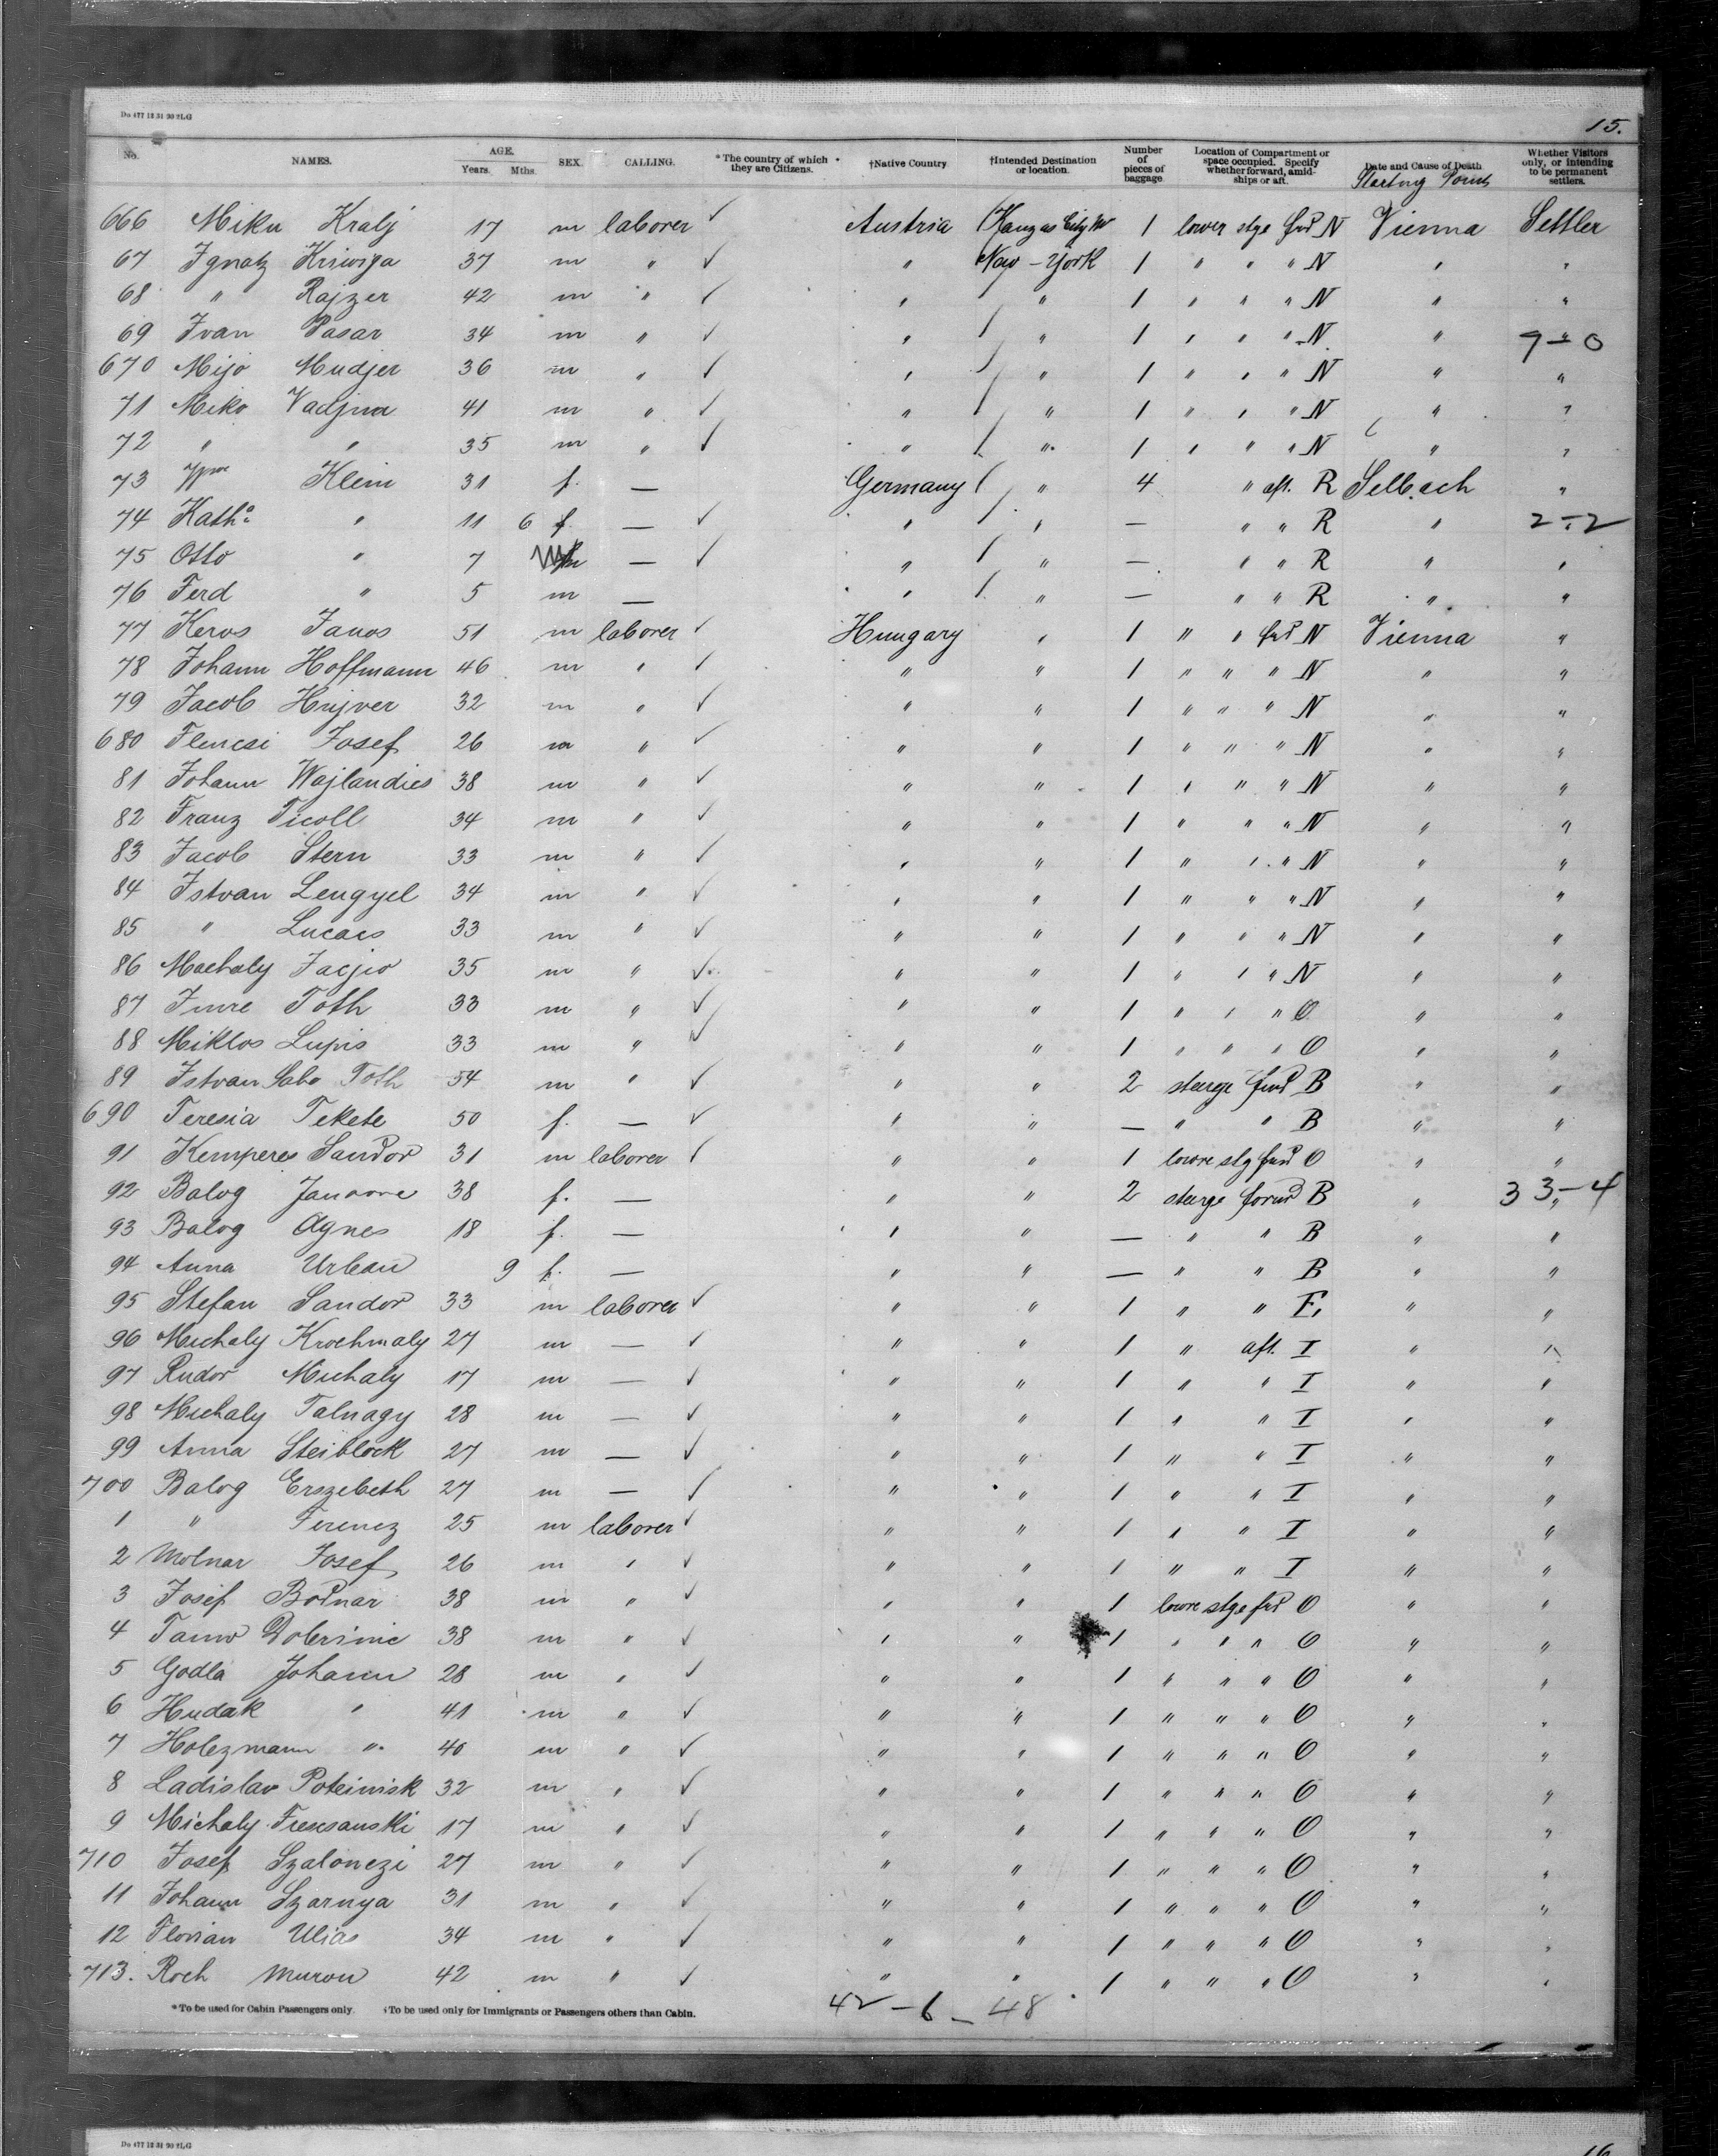 Do 477 12 31 90 2LG
15.
No. NAMES. AGE. Years. Mths. SEX. CALLING. *The country of which they are Citizens. †Native Country †Intended Destination or location. Number of pieces of baggage Location of Compartment or space occupied. Specify whether forward, amidships or aft. Date and Cause of Death Whether Visitors only, or intending to be permanent settlers.
Starting Point
666 Miku Kralj 17 m laborer ✓ Austria Kanzas City 1 lower stge fwd N Vienna Settler
67 Ignatz Kriwiga 37 m " ✓ " New-York 1 " " " N " "
68 " Rajzer 42 m " ✓ " " 1 " " " N " "
69 Ivan Pasar 34 m " ✓ " " 1 " " " N " " 9-0
670 Mijo Mudjer 36 m " ✓ " " 1 " " " N " "
71 Miko Vadjna 41 m " ✓ " " 1 " " " N " "
72 " " 35 m " ✓ " " 1 " " " N " "
73 Klein 31 f. — Germany " 4 " aft. R Selbach "
74 Katha " 11 6 f — ✓ " " — " " R " " 2-2
75 Otto " 7 m — ✓ " " — " " R " "
76 Ferd " 5 m — " " — " " R " "
77 Keros Janos 51 m laborer ✓ Hungary " 1 " " fwd N Vienna "
78 Johann Hoffmann 46 m " ✓ " " 1 " " " N " "
79 Jacob Hujver 32 m " ✓ " " 1 " " " N " "
680 Flencsi Josef 26 m " ✓ " " 1 " " " N " "
81 Johann Wajlandics 38 m " ✓ " " 1 " " " N " "
82 Franz Ticoll 34 m " ✓ " " 1 " " " N " "
83 Jacob Stern 33 m " ✓ " " 1 " " " N " "
84 Istvan Lengyel 34 m " ✓ " " 1 " " " N " "
85 " Lucacs 33 m " ✓ " " 1 " " " N " "
86 Machaly 35 m " ✓ " " 1 " " " N " "
87 Imre Toth 33 m " ✓ " " 1 " " " O " "
88 Miklos Lupis 33 m " ✓ " " 1 " " " O " "
89 Istvan Sabo Toth 54 m " ✓ " " 2 steerge fwd B " "
690 Teresia Tekete 50 f. — ✓ " " — " " B " "
91 Kemperes Sandor 31 m laborer ✓ " " 1 lowre stg fwd O " "
92 Balog 38 f. — " " 2 steerge forwd B " " 33-4
93 Balog Agnes 18 f. — " " — " " B " "
94 Anna Urban 9 f. — " " — " " B " "
95 Stefan Sandor 33 m laborer ✓ " " 1 " " E, " "
96 Michaly Krochmaly 27 m — ✓ " " 1 " aft. I " "
97 Rudor Michaly 17 m — ✓ " " 1 " " I " "
98 Michaly Talnagy 28 m — ✓ " " 1 " " I " "
99 Anna Steiblock 27 m — ✓ " " 1 " " I " "
700 Balog Erszebeth 27 m — ✓ " " 1 " " I " "
1 " Ferencz 25 m laborer ✓ " " 1 " " I " "
2 Molnar Josef 26 m " ✓ " " 1 " " I " "
3 Josef Bodnar 38 m " ✓ " " 1 lowre stge fwd O " "
4 Dobrsinic 38 m " ✓ " " 1 " " " O " "
5 Godla Johann 28 m " ✓ " " 1 " " " O " "
6 Hudak " 41 m " ✓ " " 1 " " " O " "
7 Holezmann " 40 m " ✓ " " 1 " " " O " "
8 Ladislav Poteinisk 32 m " ✓ " " 1 " " " O " "
9 Michaly 17 m " ✓ " " 1 " " " O " "
710 Josef Szalonczi 27 m " ✓ " " 1 " " " O " "
11 Johann Szarnya 31 m " ✓ " " 1 " " " O " "
12 Florian Ulias 34 m " ✓ " " 1 " " " O " "
713. Roch Murou 42 m " ✓ " " 1 " " " O " "
*To be used for Cabin Passengers only. †To be used only for Immigrants or Passengers others than Cabin.
42-6-48
Do 477 12 31 90 2LG
16